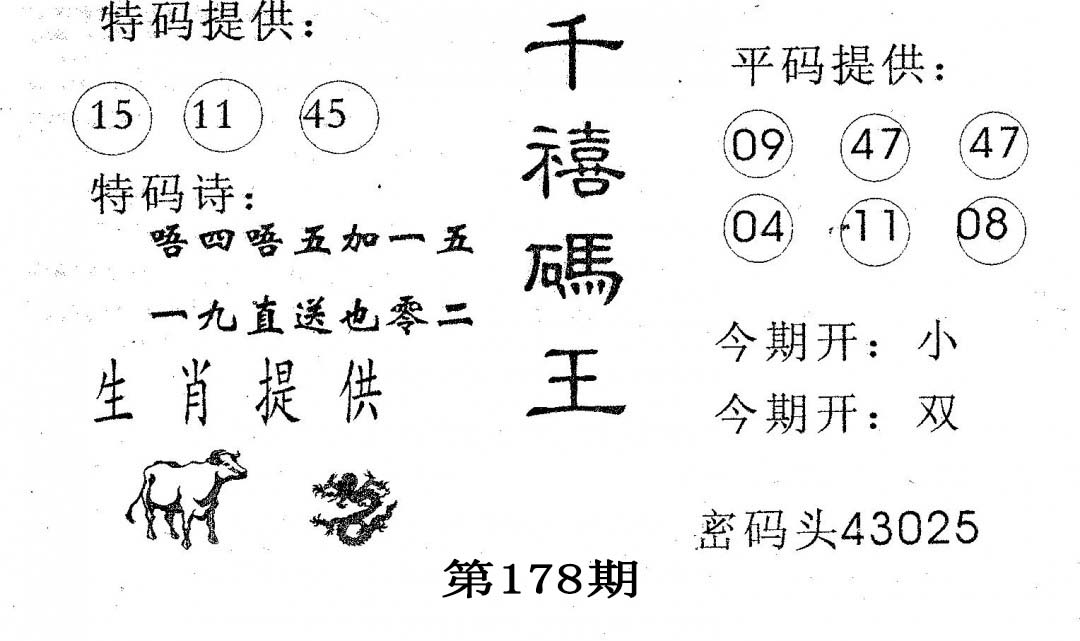 特码提供：
15 11 45
特码诗：
唔四唔五加一五
一九直送也零二
生肖提供
千禧碼王
平码提供：
09 47 47
04 11 08
今期开：小
今期开：双
密码头43025
第178期